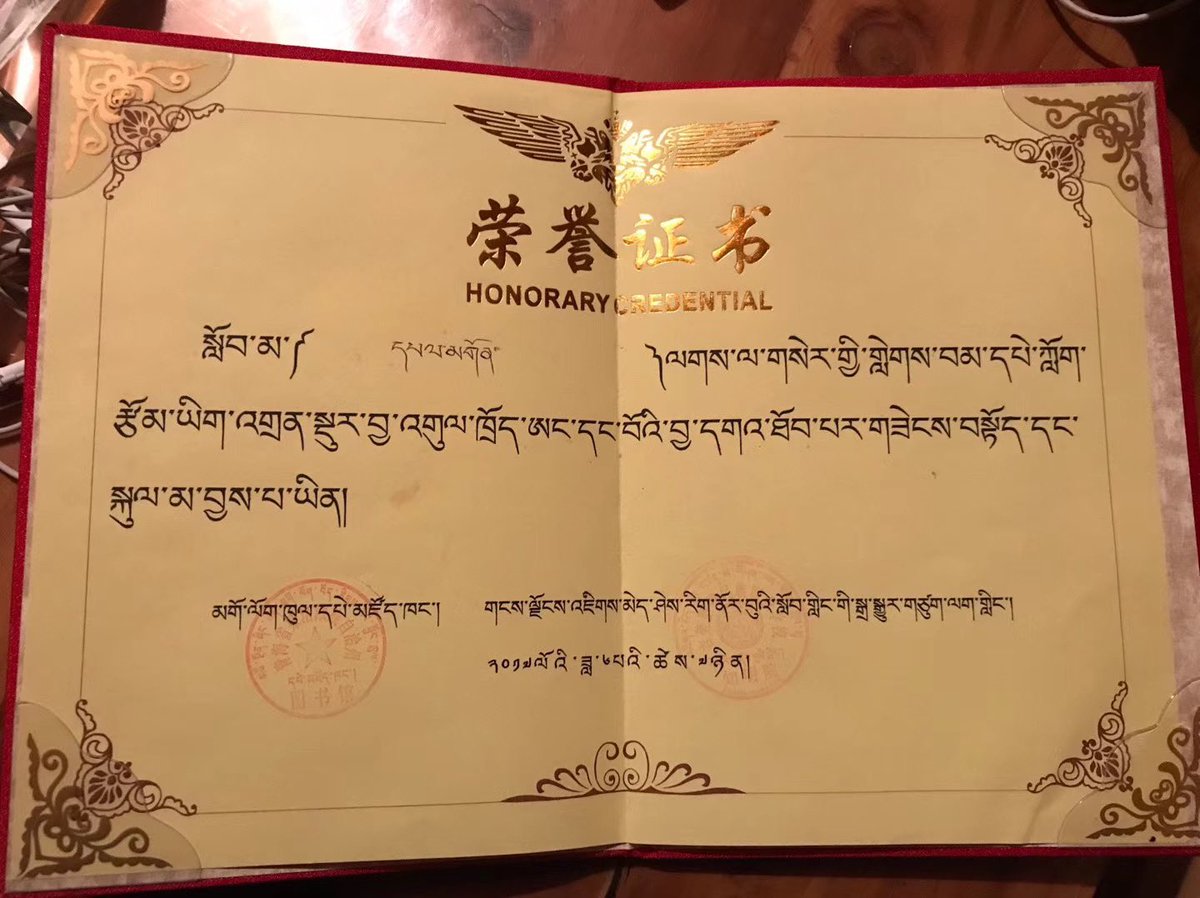 荣誉证书
HONORARY CREDENTIAL
སློབ་མ་༼ དཔལ་མགོན་ ༽ལགས་ལ་གསེར་གྱི་གླེགས་བམ་དཔེ་ཀློག་
རྩོམ་ཡིག་འགྲན་སྡུར་བྱ་འགུལ་ཁྲོད་ཨང་དང་བོའི་བྱ་དགའ་ཐོབ་པར་གཟེངས་བསྟོད་དང་
སྐུལ་མ་བྱས་པ་ཡིན།
མགོ་ལོག་ཁུལ་དཔེ་མཛོད་ཁང་། གངས་ལྗོངས་འཇིགས་མེད་ཤེས་རིག་ནོར་བུའི་སློབ་གླིང་གི་སྒྲ་སྒྱུར་གཙུག་ལག་གླིང་།
༢༠༡༧ལོའི་ཟླ་༦པའི་ཚེས་༧ཉིན།